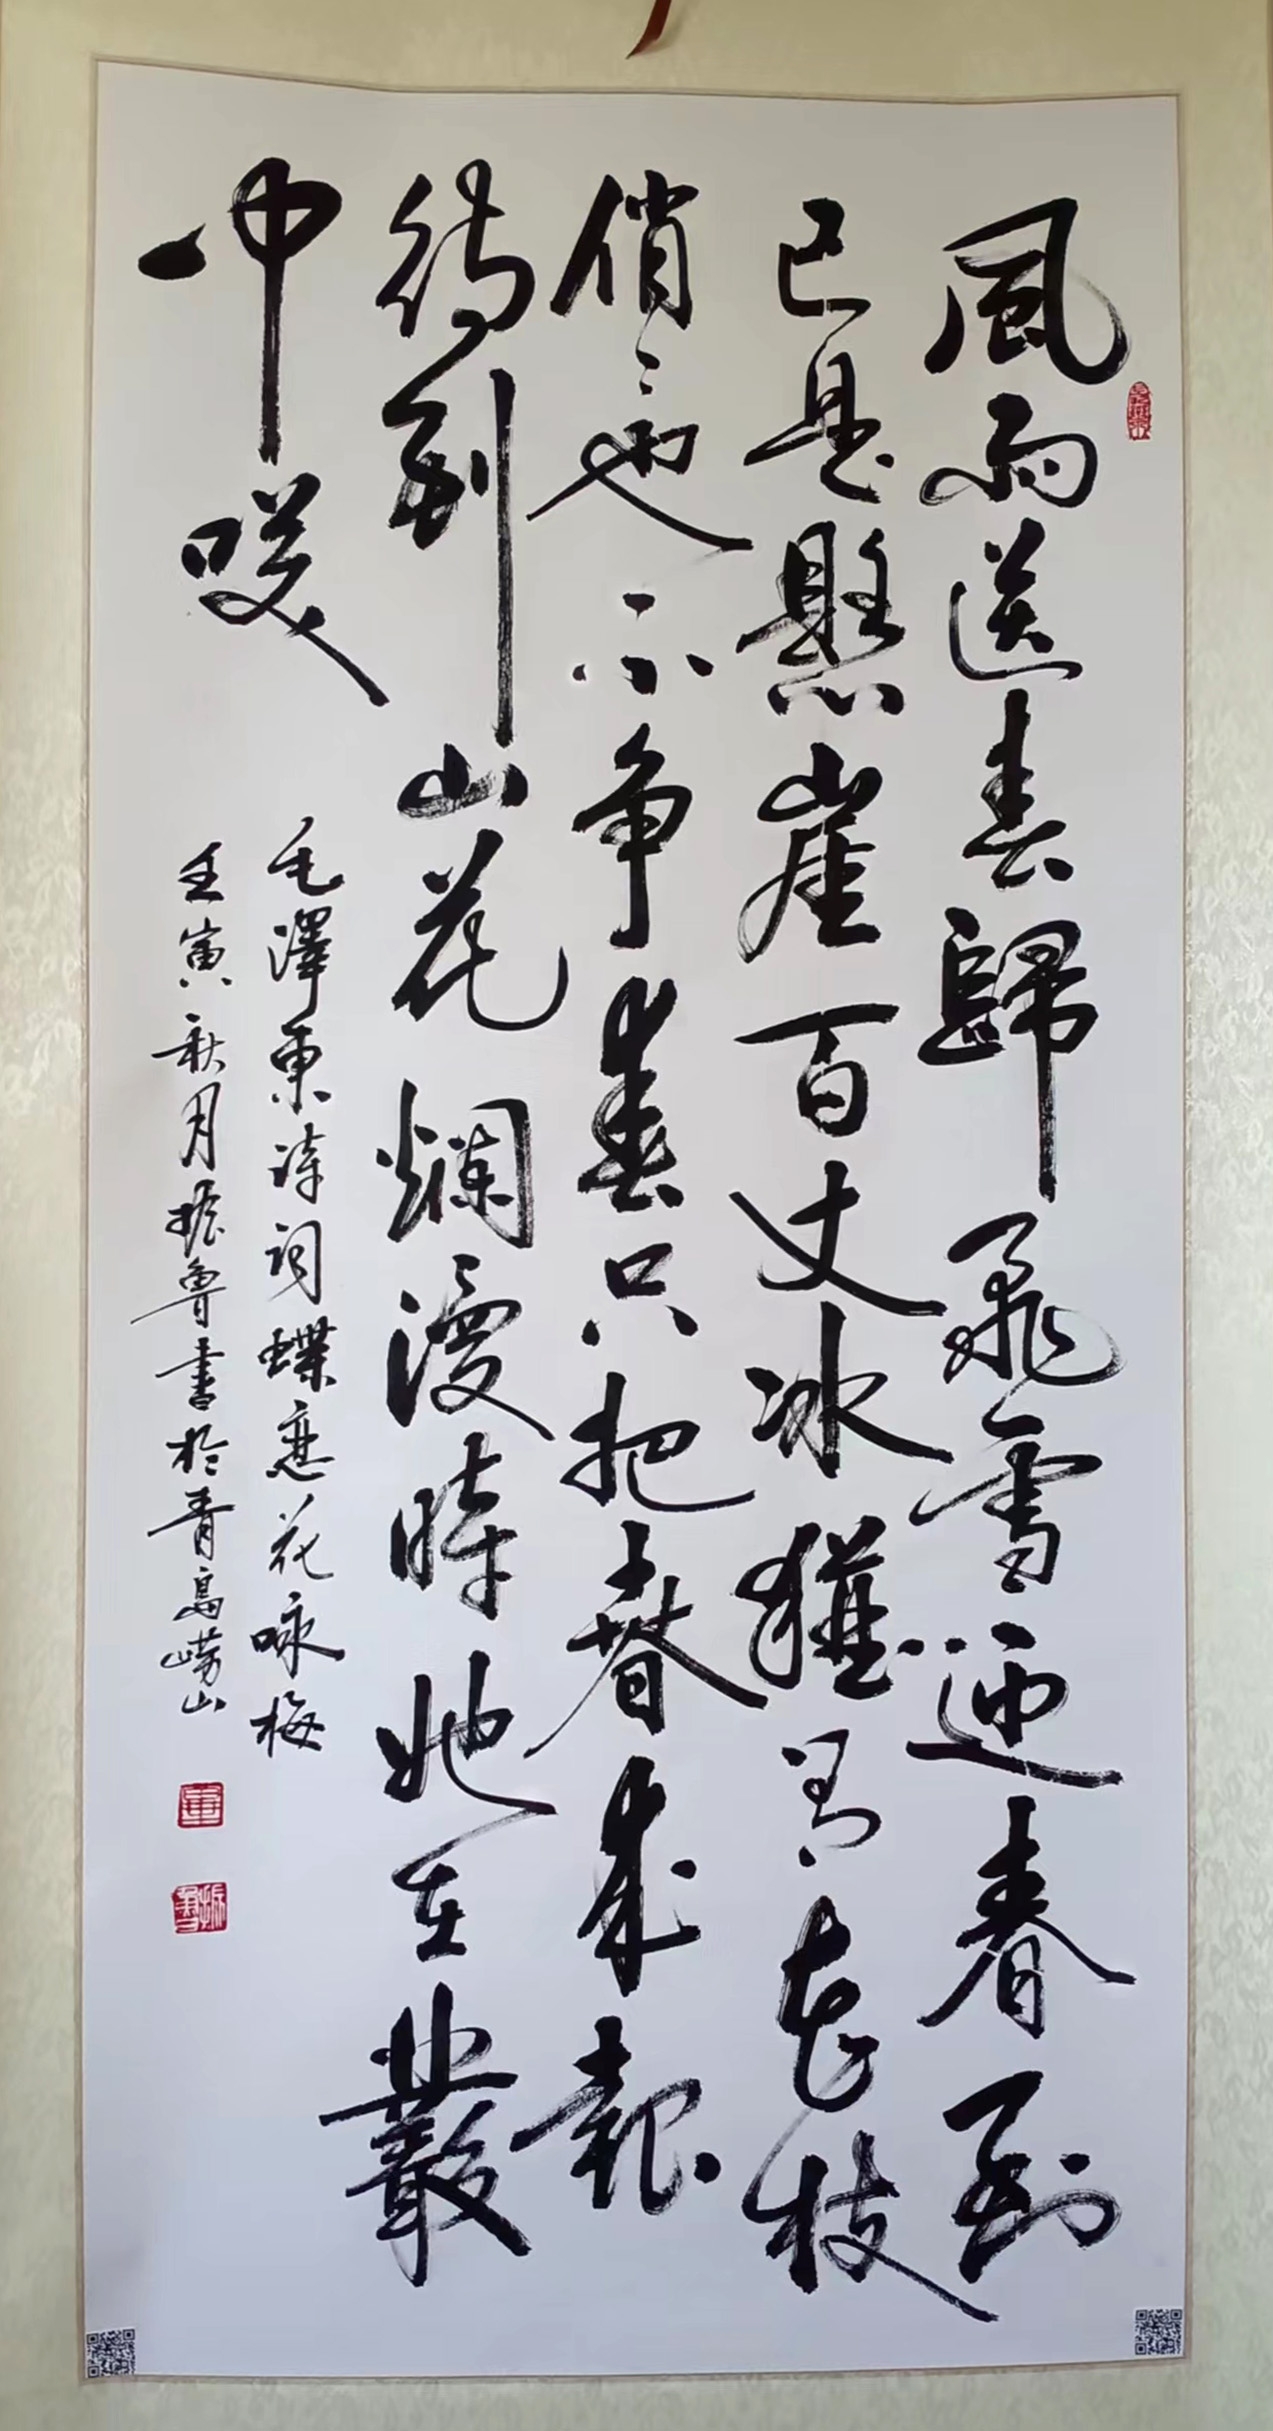 風雨送春歸飛雪迎春到
已是懸崖百丈冰猶有花枝
俏〻也不争春只把春来報
待到山花爛漫時她在叢
中咲
毛澤東詩詞蝶恋花咏梅
壬寅秋月振魯書於青島嶗山